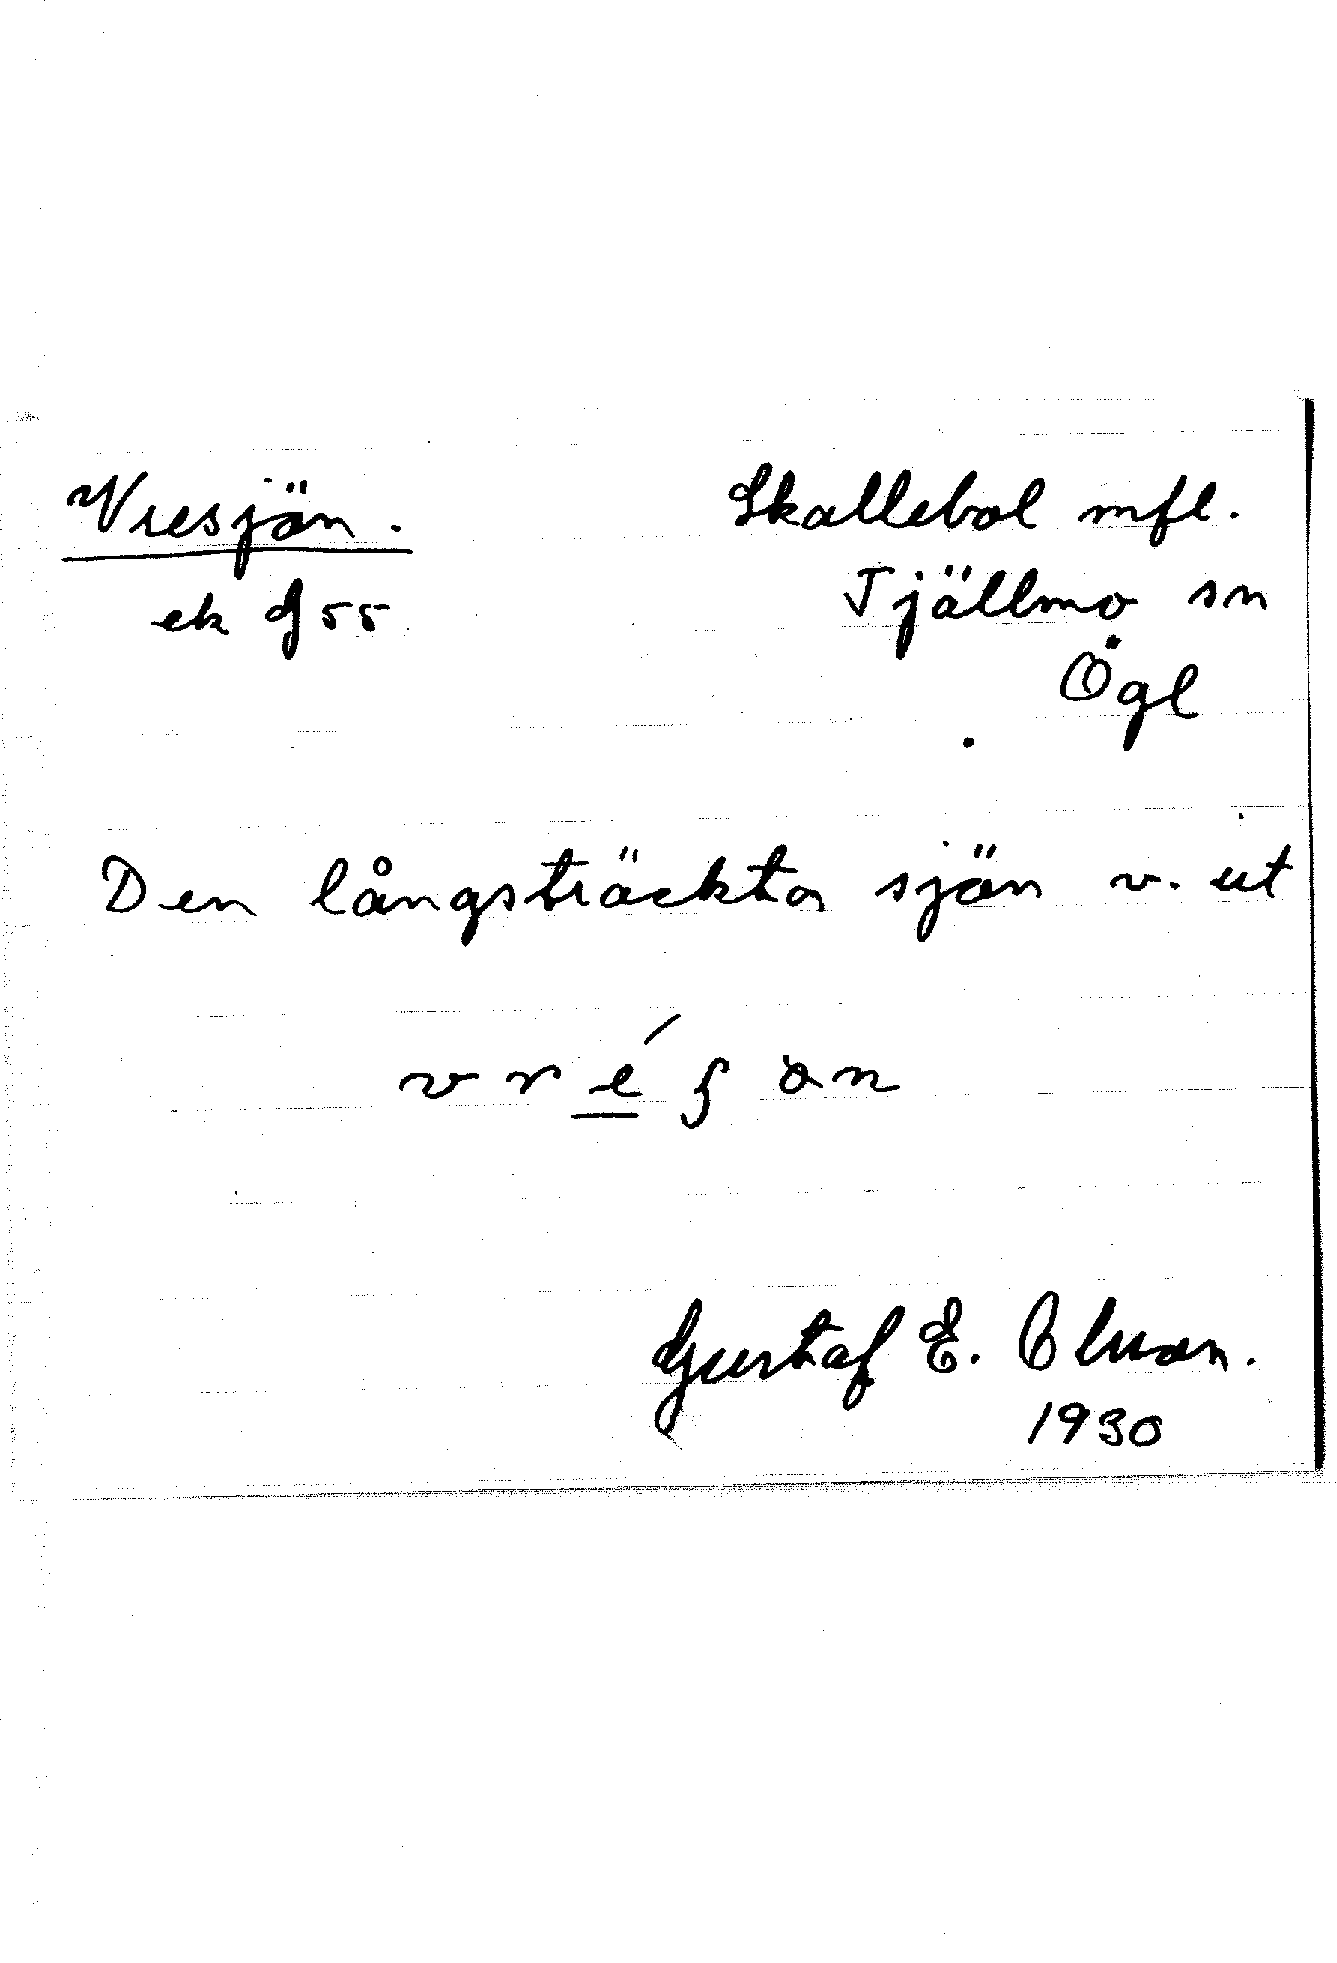 Vresjön.
Skallebol mfl.
ek J 55
Tjällmo sn
Ögl
Den långsträckta sjön v. ut
v r é ʃ ɷ n
Gustaf E.
1930